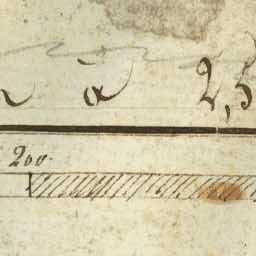 à 2,5
200.